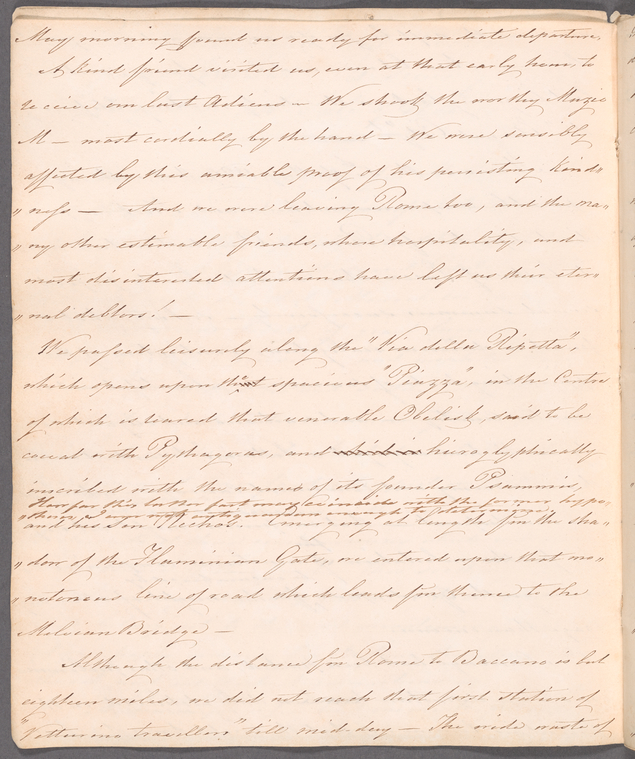 May morning found us ready for immediate departure.
A kind friend visited us, even at that early hour, to
receive our last Adieus – We shook the worthy
M – most cordially by the hand – We were sensibly
affected by this amiable proof of his persisting kind„
„ness – And we were leaving Rome too, and the ma„
„ny other estimable friends, whose hospitality, and
most disinterested attentions have left us their eter
„nal debtors! –
We passed leisurely along the "Via della Ripetta",
which opens upon that spacious "Piazza", in the Centre
of which is reared that venerable Obelisk, said to be
coeval with Pythagoras, and hieroglyphically
inscribed with the names of its founder Psammis,
How far this latter fact may coincide with the former hypo„
„thesis, I am not
and his Son Nechao. Emerging at length fm the sha„
„dow of the Flaminian Gate, we entered upon that mo„
„notonous line of road which leads fm thence to the
Melvian Bridge –
Although the distance fm Rome to Baccano is but
eighteen miles, we did not reach that first station of
"Vetturino travellers" till mid-day – The wide waste of